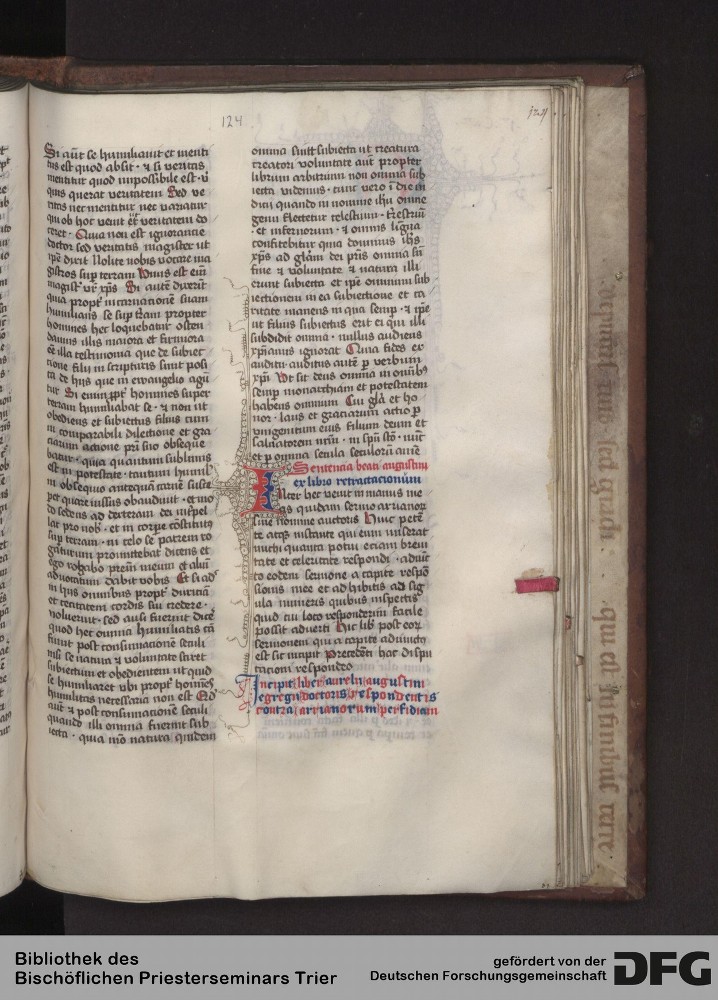 124
Si aut̄ se humiliauit et menti
tus est quod absit · ⁊ si veritas
mentitur quod impossibile est · v̄
quis querat veritatem Sed ve
ritas nec mentitur nec variatur
qui ob hoc venit ut veritatem do
ceret · Quia non est ignorantie
doctor sed veritatis magister ut
ip̄e dixit Nolite vobis vocare ma
gistros sup terram Vnus est eni
magist' vr̄ xp̄s Si autē dixerit
quia propt' incarnacionem suam
humilians se sup tr̄am propter
homines hec loquebatur osten
damus illis maiora et firmiora
ēē illa testimonia que de subiec
tione filii in scripturis sunt posi
ta de hiis que in ewangelio agū
tur Si enim ꝓpt' homines super
terram humiliabat se · ⁊ non ut
obediens et subiectus filius cum
in comparabili dilectione et gra
ciarum actione pr̄i suo obseque
batur · quia quantum sublimis
est in potestate · tantum humil'
in obsequio
per quam iussus obaudiuit · et mo
do sedens ad dexteram dei int'pel
lat pro nob' · et in corpe constitut'
sup terram · in celo se patrem ro
gaturum promittebat dicens et
ego rogabo prēm meum et aliū
aduocatum dabit vobis Et si ad
in hiis omnibus propt' duriciā
et cecitatem cordis sui credere ·
noluerint · sed ausi fuerint dicē
quod hec omnia humiliatus cā
fuerat post consumationem seculi
nisi se natura ⁊ voluntate sciret
subiectum et obedientem ut quid
se humiliaret vbi propt' hominē
humilitas necessaria non est Qd
aut̄ ⁊ post consumationem seculi
quando illi omnia fuerint sub
iecta · quia mō natura quidem
omnia sunt subiecta ut creatura
creatori voluntate aut̄ propter
librum arbitrium non omnia sub
iecta videmus · tunc vero ī die iu
dicii quando in nomine ihu omne
genu flectetur celestium · t'restriū
et infernorum · ⁊ omnis ligua
confitebitur quia dominus ihs
xp̄s ad glām dei pris omnia sn̄
fine ⁊ voluntate ⁊ natura illi
erunt subiecta et ipe omnium sub
iectionem in ea subiectione et ca
ritate manens in qua semp · ⁊ ip̄e
ut filius subiectus erit ei qui illi
subdidit omnia · nullus audiens
xp̄ianus ignorat Quia fides ex
auditu auditus autē p verbum
xp̄i Vt sit deus omnia in omīb'
semp monarchiam et potestatem
habens omnium Cui glā et ho
nor · laus et graciarum actio p
vnigenitum eius filium deum et
saluatorem nr̄m · in spū sc̄o · nūc
et p omnia secula seculorū amē
Sententia beati augustini
ex libro retractacionum
INter hec venit in manus me
as quidam sermo arrianorū
sine nomine auctoris Huic petē
te atqȝ instante qui eum miserat
michi quanta potui eciam breui
tate et celeritate respondi · adiūc
to eodem sermone a capite respō
sionis mee et adhibitis ad sig
la numeris quibus inspectis
quid cui loco responderim facile
possit aduerti Hic lib' post eor̄
sermonem qui a capite adiunct'
est sic incipit Precedēti hac dispu
tacioni respondeo
Incipit liber aurelii augustini
egregii doctoris respondentis
contra arrianorum perfidiam
Bibliothek des
Bischöflichen Priesterseminars Trier
gefördert von der
Deutschen Forschungsgemeinschaft
DFG